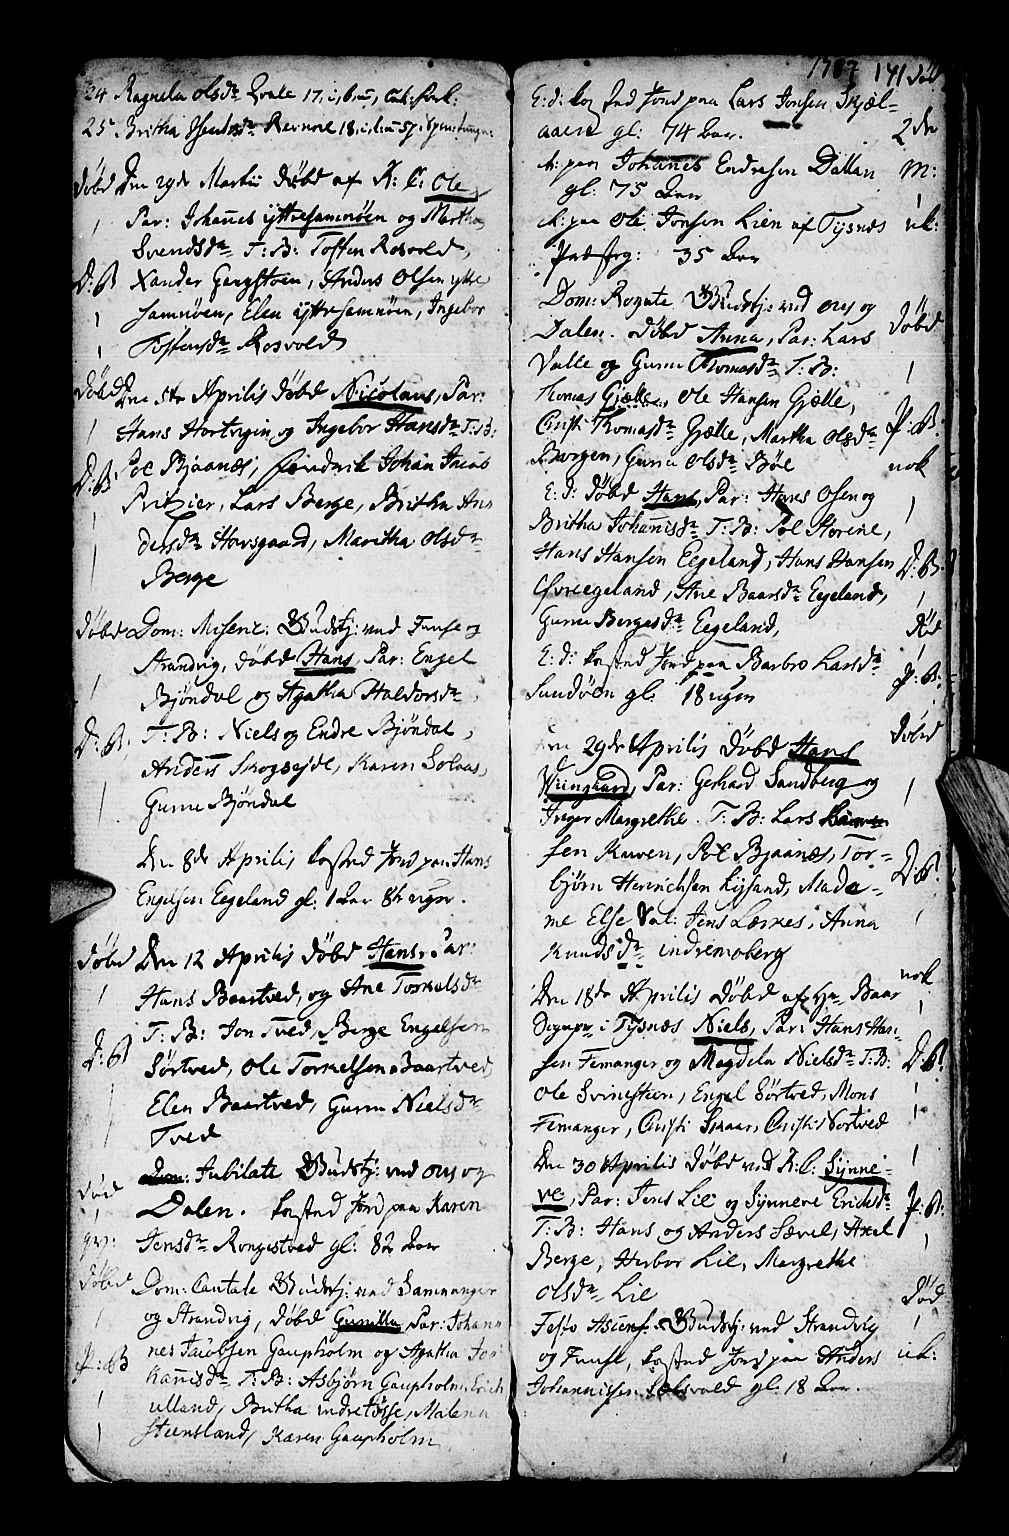 24 Ragnela Olsdr. Qvale 17.
25. Britha Revnøe 18
døbd Den 29de Martii døbd af K: C: Ole
Par: Johannes yttresamnøen og Martha
Svendsdr. T: B: Tosten Rosvold,
D: B Xander Gangstoen, Anders Olsen ytre
samnøen, Elen yttresamnøen, Ingebor
Tostensdr. Rosvold
døbd Den 5te Aprilis døbd Nicolaus, Par:
Hans Hortvigin og Ingebor Hansdr. T: B:
D: B: Pol Bjaanæs, Hendrik Johan Jacob
Pritzier, Lars Berge, Britha An
dersdr. Havsgaard, Maritha Olsdr.
Berge
døbd Dom: Miseric: Gudstj: ved Fuuse og
Strandvig, døbd Hans, Par: Engel
Bjöndal og Agatha Haldorsdr.
D: B. T: B: Niels og Endre Bjöndal,
Anders Skogseyde, Karen Solaas,
Gurne Bjöndal
Den 8de Aprilis kasted Jord paa Hans
Engelsen Eegeland gl: 1 Aar 8te uger.
døbd Den 12 Aprilis døbd Hans, Par:
Hans Baartved, og Ane Torkelsdr.
D: B T: B: Jon Tved, Berge Engelsen
Sørtved, Ole Torkelsen Baartved,
Elen Baartved, Gurne Nielsdr.
Tved
død Dom: Jubilate Gudstj: ved Ous og
Dalen. kasted Jord paa Karen
Jensdr. Rongestved gl: 82 Aar
døbd Dom: Cantate Gudstj: ved Samnanger
og Strandvig, døbd Gunilla, Par: Johan
nes Jacobsen Gaupholm og Agatha Jo
P: B hannisdr. T: B: Asbjørn Gaupholm, Erich
ulland, Britha indretøsse, Malena
Steensland, Karen Gaupholm
1787 141 død
E: d: kasted Jord paa Lars Jonsen Skjel-
aaen gl: 74 Aar. 2den
it: paa Johannes Endresen Dallan M:
gl: 75 Aar
it: paa Ole Jonsen Lien af Tysnæs uk:
Præsteg: 35 Aar
Dom: Rogate Gudstj: ved Ous og
Dalen. døbd Anna, Par: Lars døbd
Valle og Gurne Thomasdr. T: B:
Thomas Gjelle, Ole Hansen Gjelle,
Christi Thomasdr. Gjelle, Martha Olsdr. P: B:
Borgen, Gurne Olsdr. Bøe nok
E: d: døbd Hans, Par: Hans Osen og
Britha Johannisdr. T: B: Pol Storene,
Hans Hansen Eegeland, Hans Hansen D: B.
Øvreegeland, Ane Baarsdr. Eegeland,
Gurne Bergesdr. Eegeland, død
E: d: kasted Jord paa Barbro Larsdr. P: B:
Sundöen gl: 18 uger
Den 29de Aprilis døbd Hans døbd
Wiingaard, Par: Gerhard Sandberg og
Inger Margrethe. T: B: Lars
sen Kuven, Pol Bjaanæs, Tor- D: B.
bjørn Henrichsen Lysand, Mada-
me Else Sal: Jens Lærkes, Anna
Knudsdr. indremoberg
nok
Den 18de Aprilis døbd af Hr. Baar
i Tysnæs Niels, Par: Hans Han
sen Femanger og Magdela Nielsdr. T: B: D: B.
Ole Svinestien, Engel Sörtved, Mons
Femanger, Christi Skaar, Christi Nortved
Den 30 Aprilis døbd ved K: C: Synne-
ve, Par: Jens Lie og Synneve Ericksdr. P: B.
T: B: Hans og Anders Sævel, Axel
Berge, Herbor Lie, Margrethe
Olsdr. Lie død
Festo Ascens. Gudstj: ved Strandvig
og Fuuse, kasted Jord paa Anders uk:
Johannissen gl: 18 Aar.